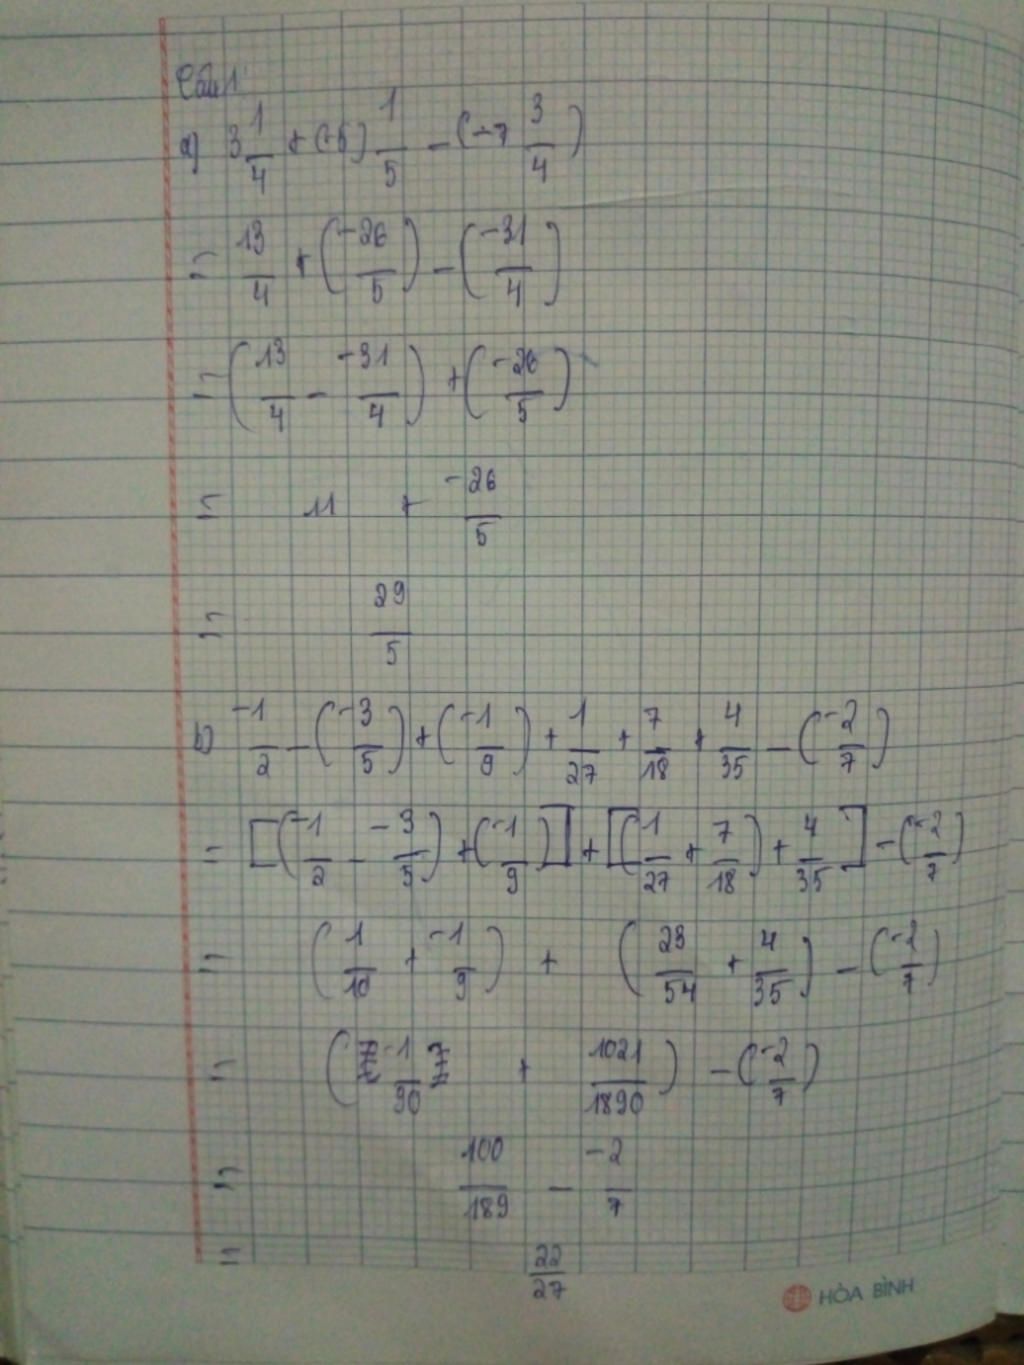 Câu 1
a) 3 1/4 + (-5) 1/5 - (-7 3/4)
= 13/4 + (-26/5) - (-31/4)
= (13/4 - -31/4) + (-26/5)
= 11 + -26/5
= 29/5
b) -1/2 - (-3/5) + (-1/9) + 1/27 + 7/18 + 4/35 - (-2/7)
= [(-1/2 - -3/5) + (-1/9)] + [(1/27 + 7/18) + 4/35] - (-2/7)
= (1/10 + -1/9) + (23/54 + 4/35) - (-2/7)
= (-1/90 + 1021/1890) - (-2/7)
= 100/189 - -2/7
= 22/27
HÒA BÌNH